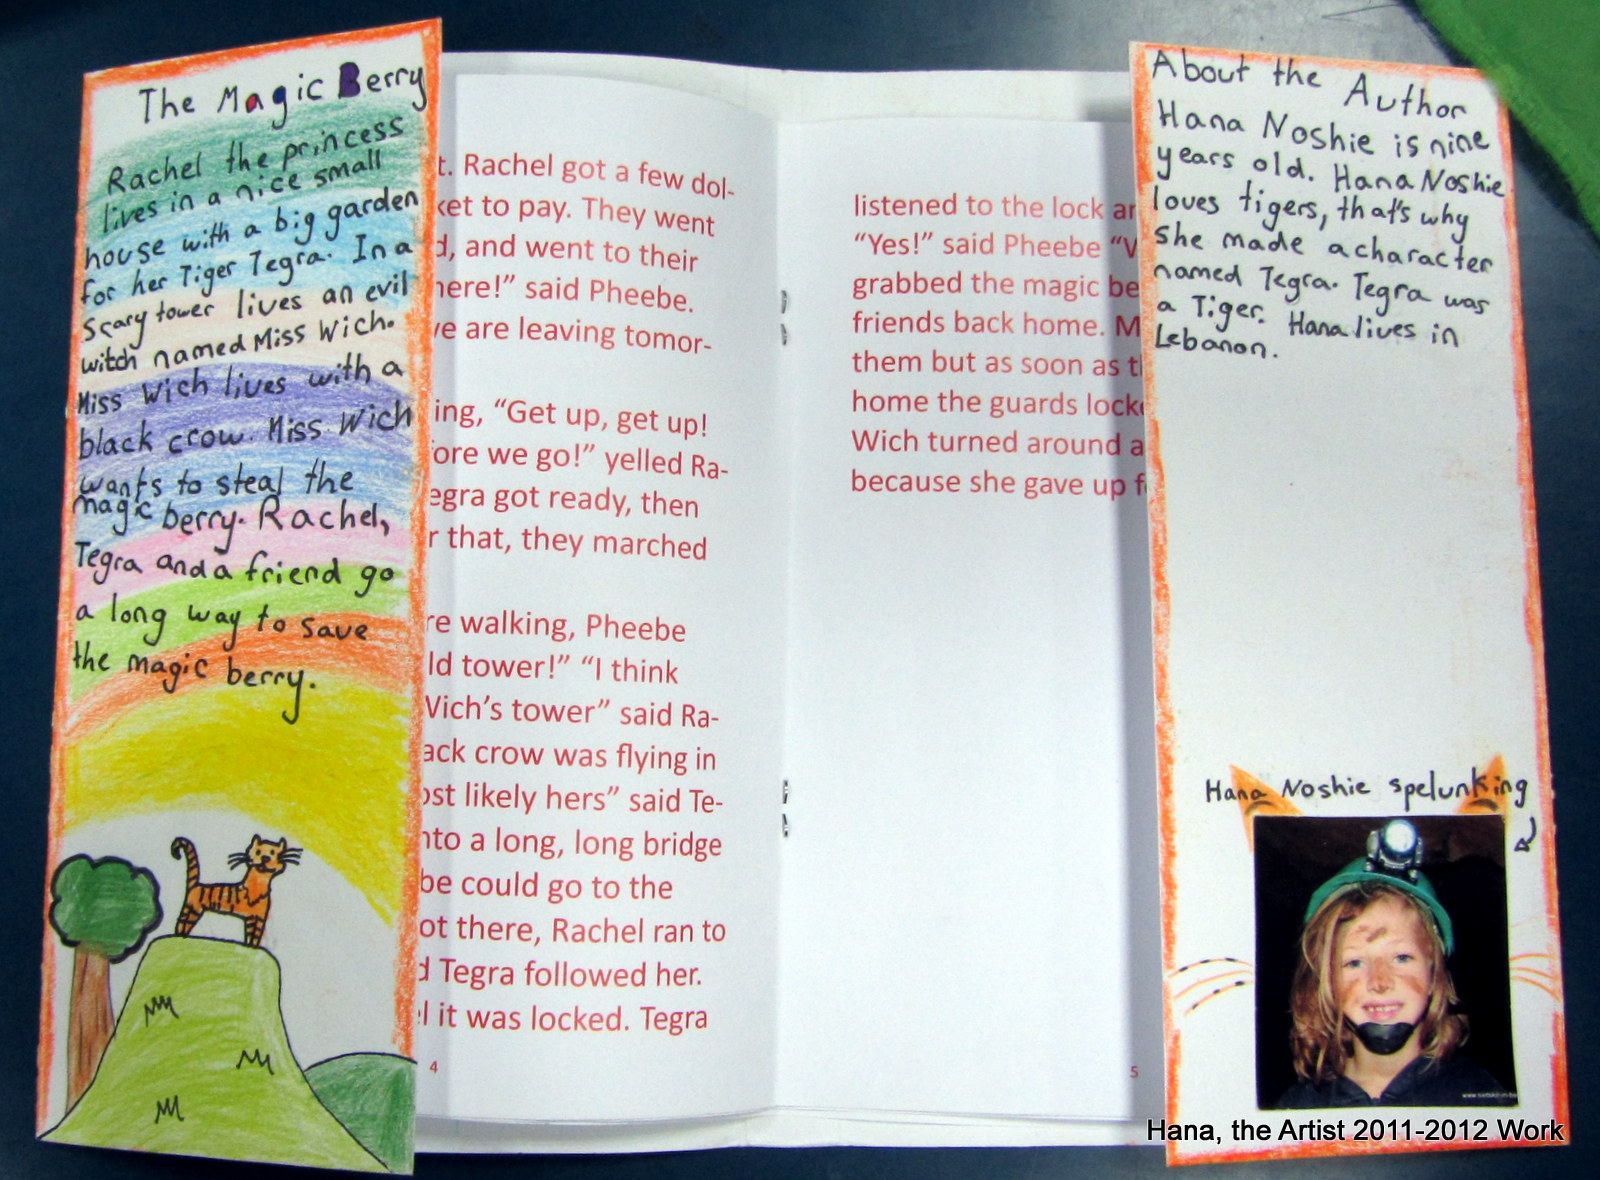 The Magic Berry
Rachel the princess
lives in a nice small
house with a big garden
for her Tiger Tegra. In a
scary tower lives an evil
witch named Miss Wich.
Miss Wich lives with a
black crow. Miss Wich
wants to steal the
magic berry. Rachel,
Tegra and a friend go
a long way to save
the magic berry.
t. Rachel got a few dol-
ket to pay. They went
d, and went to their
here!” said Pheebe.
ve are leaving tomor-
ing, “Get up, get up!
fore we go!” yelled Ra-
egra got ready, then
r that, they marched
re walking, Pheebe
ld tower!” “I think
Wich’s tower” said Ra-
ack crow was flying in
ost likely hers” said Te-
nto a long, long bridge
be could go to the
ot there, Rachel ran to
d Tegra followed her.
l it was locked. Tegra
4
listened to the lock ar
“Yes!” said Pheebe “V
grabbed the magic be
friends back home. M
them but as soon as t
home the guards lock
Wich turned around a
because she gave up f
5
About the Author
Hana Noshie is nine
years old. Hana Noshie
loves tigers, that's why
she made a character
named Tegra. Tegra was
a Tiger. Hana lives in
Lebanon.
Hana Noshie spelunking
Hana, the Artist 2011-2012 Work